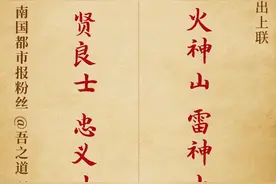 出上联
火神山 雷神
贤良士 忠义
南国都市报粉丝@吾之道